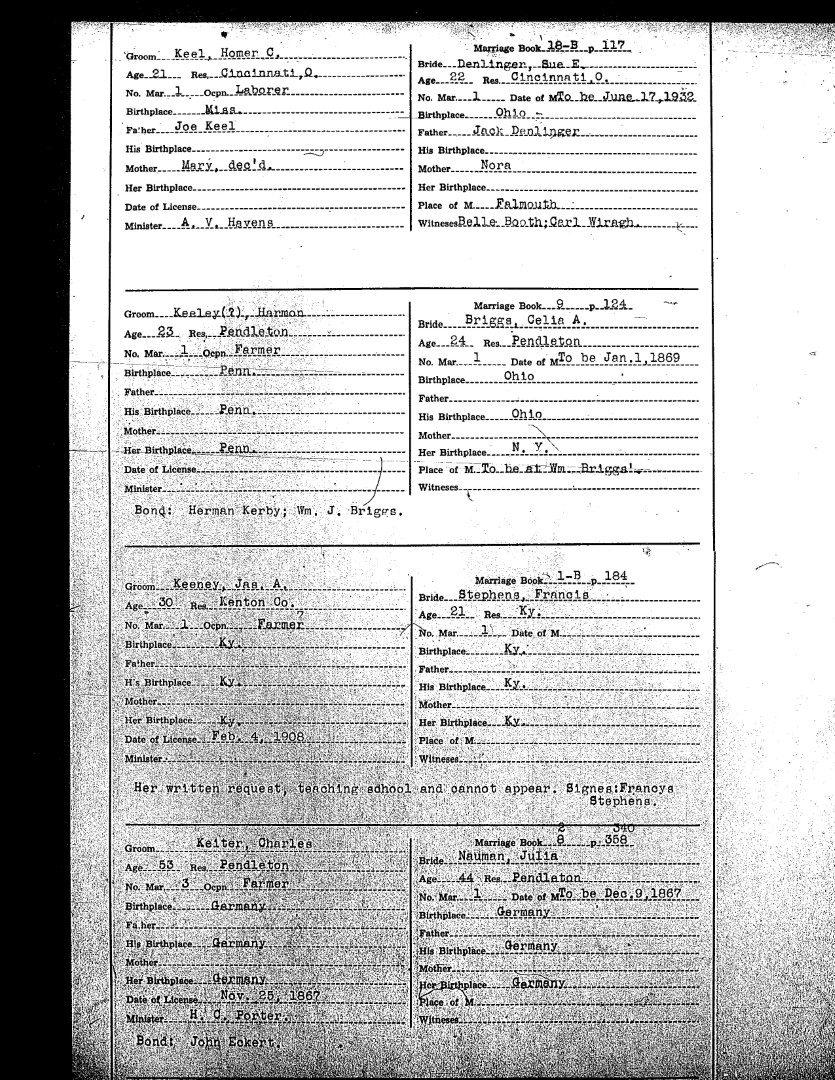 Groom Keel, Homer C.
Age 21 Res. Cincinnati,O.
No. Mar. 1 Ocpn. Laborer
Birthplace Miss.
Father Joe Keel
His Birthplace
Mother Mary, dec'd.
Her Birthplace
Date of License
Minister A. V. Havens
Marriage Book 18-B p. 117
Bride Denlinger, Sue E.
Age 22 Res. Cincinnati,O.
No. Mar. 1 Date of M To be June 17,1932
Birthplace Ohio
Father Jack Denlinger
His Birthplace
Mother Nora
Her Birthplace
Place of M. Falmouth
Witnesses Belle Booth;Carl Wiragh.
Groom Keeley(?), Harmon
Age 23 Res. Pendleton
No. Mar. 1 Ocpn. Farmer
Birthplace Penn.
Father
His Birthplace Penn.
Mother
Her Birthplace Penn.
Date of License
Minister
Marriage Book 9 p. 124
Bride Briggs, Celia A.
Age 24 Res. Pendleton
No. Mar. 1 Date of M To be Jan.1,1869
Birthplace Ohio
Father
His Birthplace Ohio
Mother
Her Birthplace N. Y.
Place of M. To be at Wm. Briggs'.
Witnesses
Bond: Herman Kerby; Wm. J. Briggs.
Groom Keeney, Jas. A.
Age 30 Res. Kenton Co.
No. Mar. 1 Ocpn. Farmer
Birthplace Ky.
Father
His Birthplace Ky.
Mother
Her Birthplace Ky.
Date of License Feb. 4, 1908
Minister
Marriage Book 1-B p. 184
Bride Stephens, Francis
Age 21 Res. Ky.
No. Mar. 1 Date of M.
Birthplace Ky.
Father
His Birthplace Ky.
Mother
Her Birthplace Ky.
Place of M.
Witnesses
Her written request, teaching sdhool and cannot appear. Signes:Francys
Stephens.
Groom Keiter, Charles
Age 53 Res. Pendleton
No. Mar. 3 Ocpn. Farmer
Birthplace Germany
Father
His Birthplace Germany
Mother
Her Birthplace Germany
Date of License Nov. 25, 1867
Minister H. C. Porter.
2 340
Marriage Book 8 p. 358
Bride Nauman, Julia
Age 44 Res. Pendleton
No. Mar. 1 Date of M To be Dec.9,1867
Birthplace Germany
Father
His Birthplace Germany
Mother
Her Birthplace Germany
Place of M.
Witnesses
Bond: John Eckert.